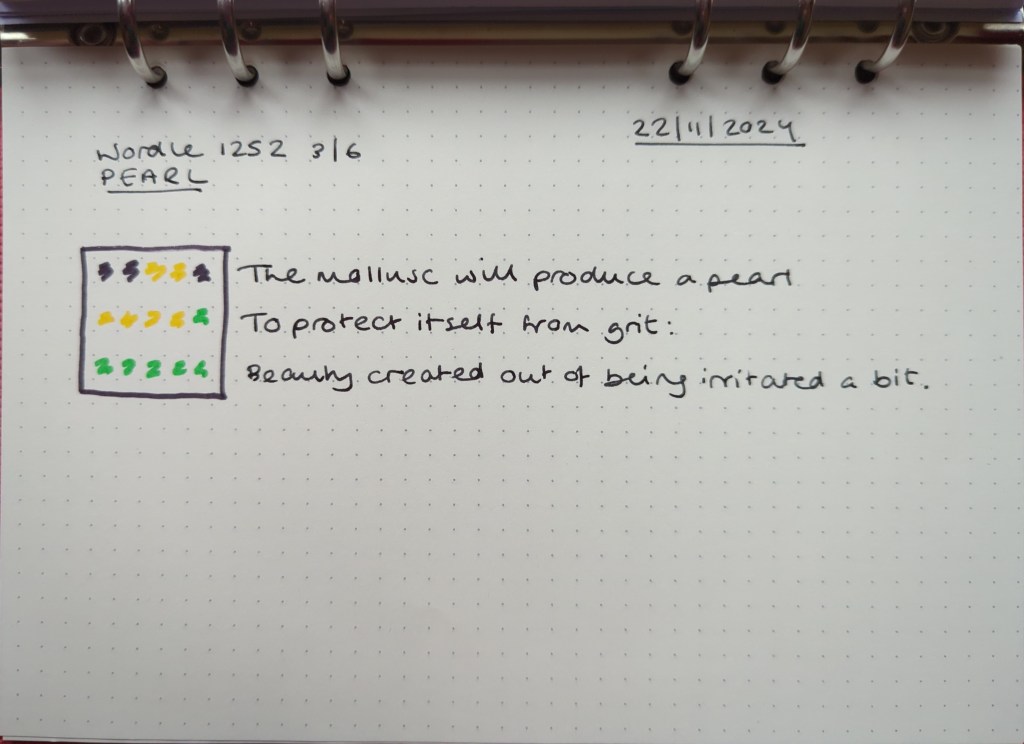 22/11/2024
Wordle 1252 3/6
PEARL
The mollusc will produce a pearl
To protect itself from grit:
Beauty created out of being irritated a bit.